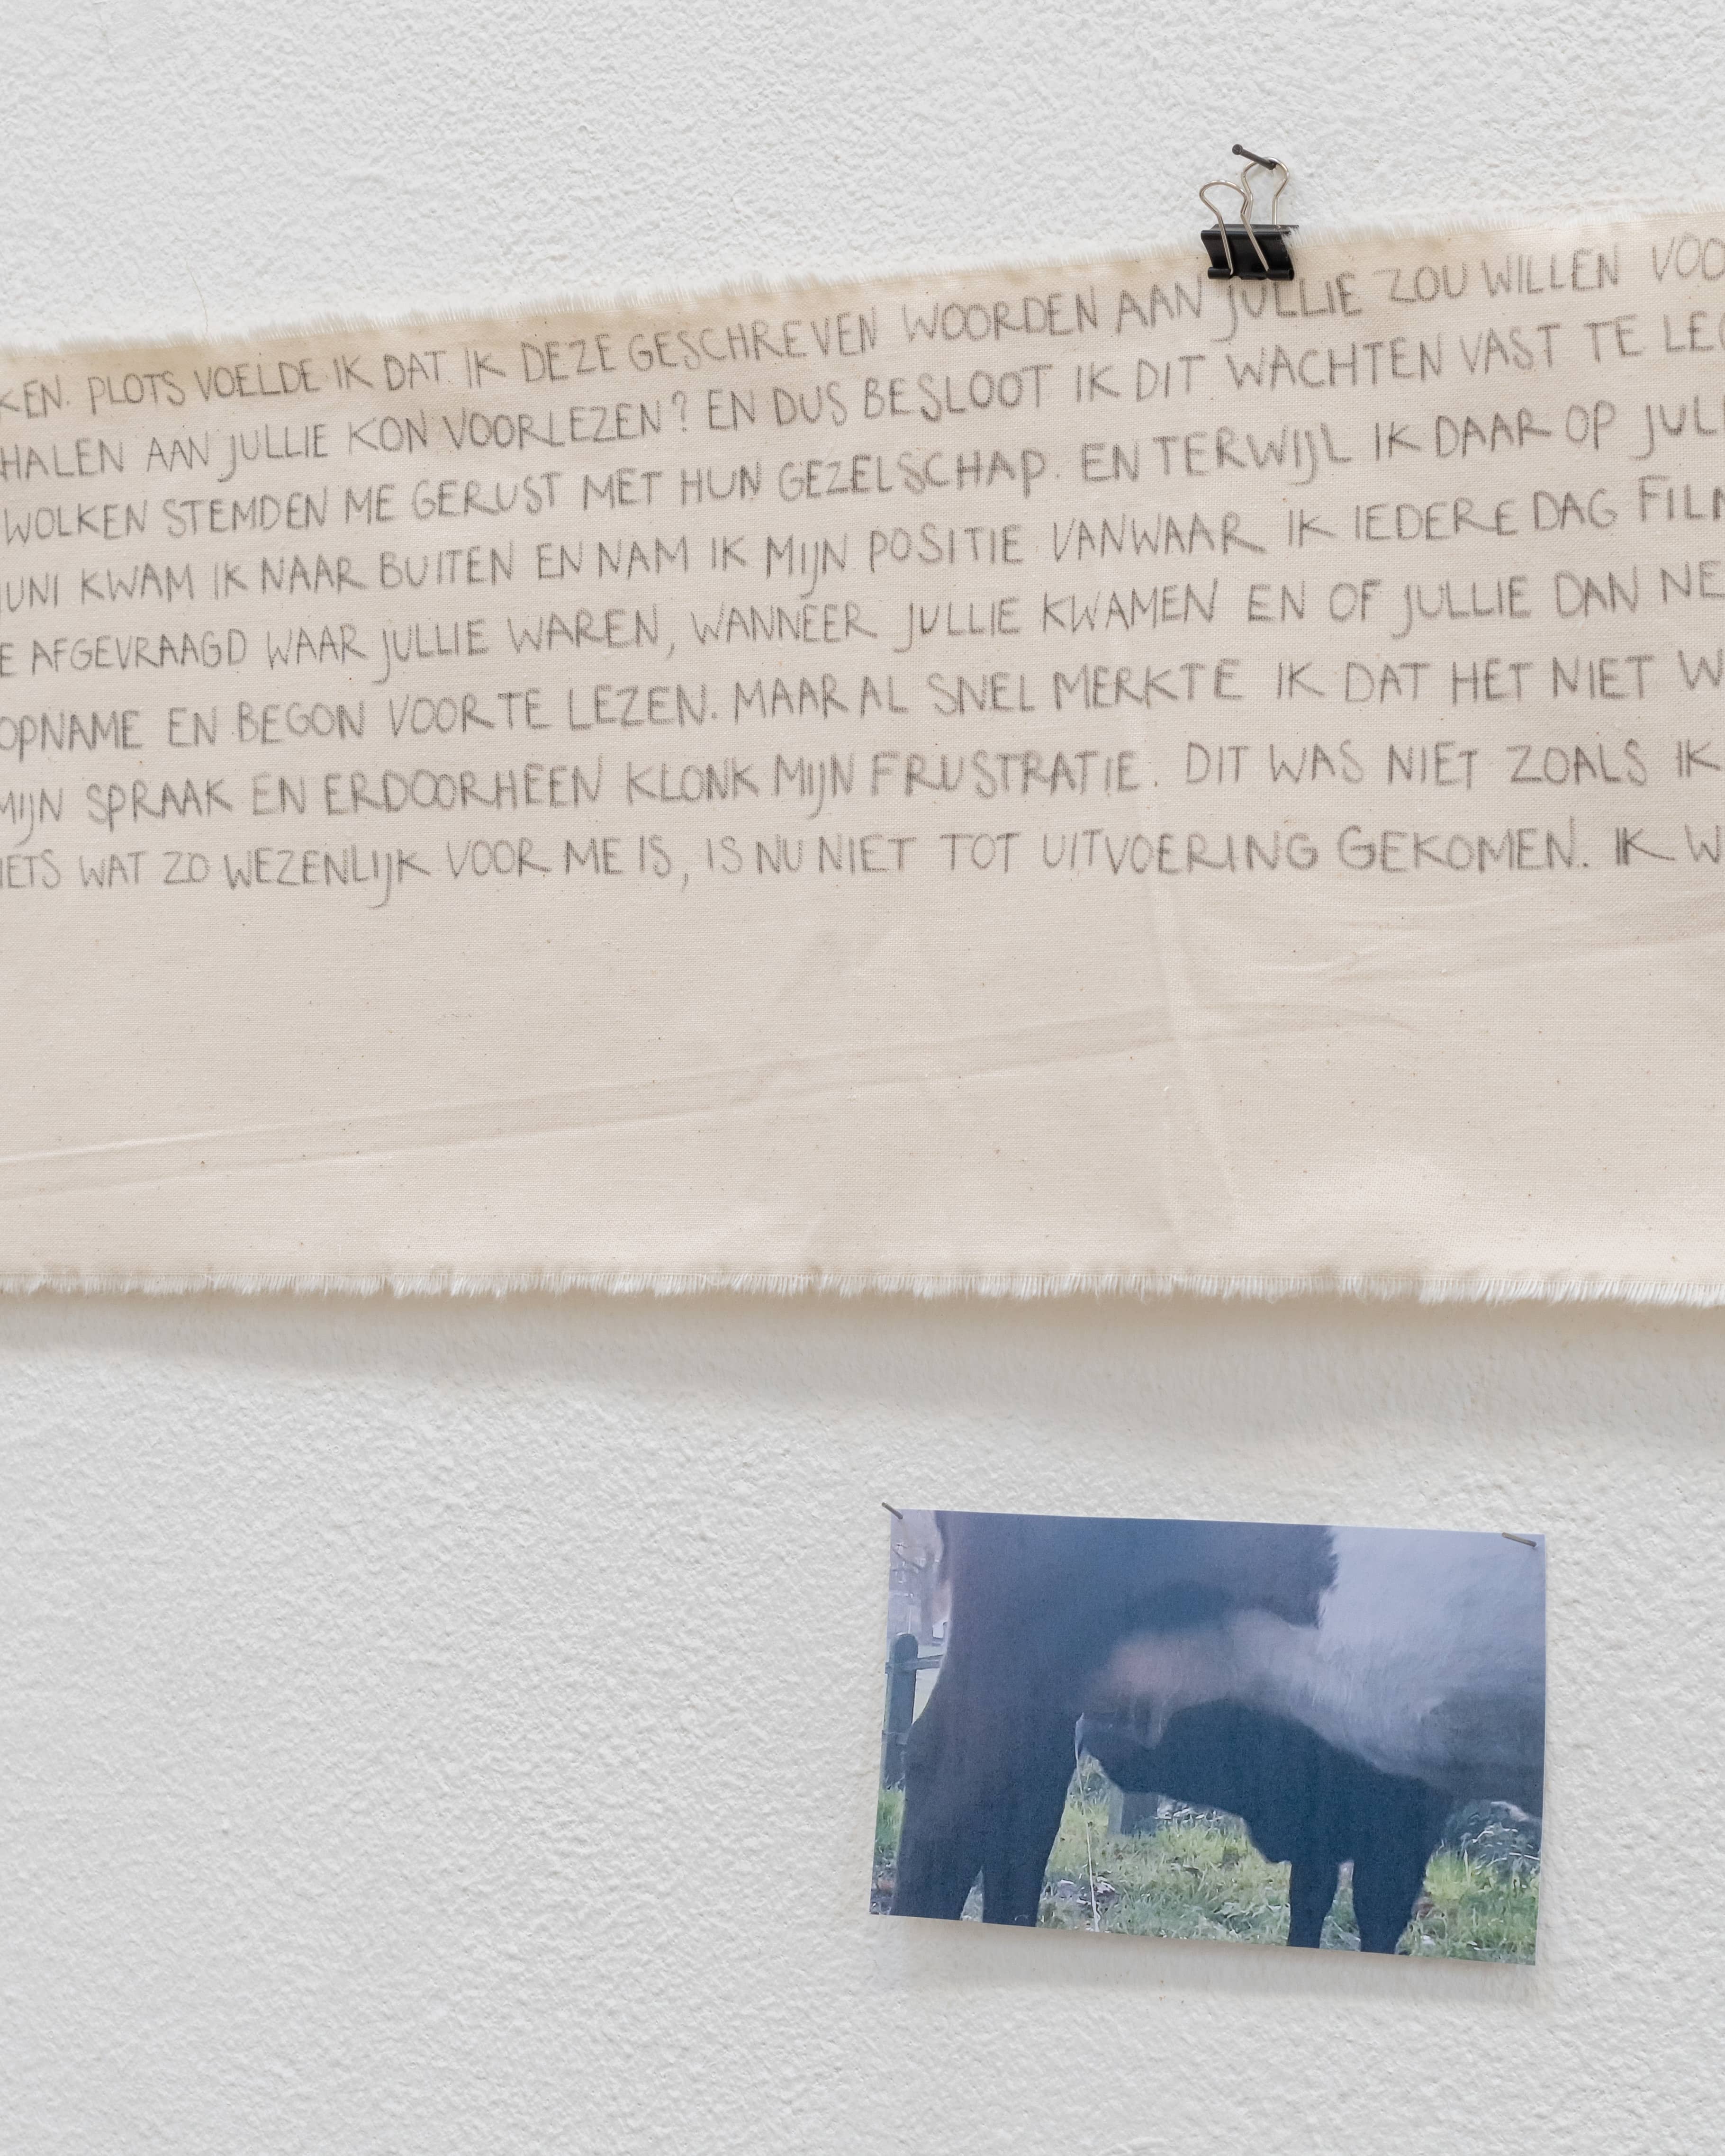 KEN. PLOTS VOELDE IK DAT IK DEZE GESCHREVEN WOORDEN AAN JULLIE ZOU WILLEN VOO
HALEN AAN JULLIE KON VOORLEZEN? EN DUS BESLOOT IK DIT WACHTEN VAST TE LEG
WOLKEN STEMDEN ME GERUST MET HUN GEZELSCHAP. EN TERWIJL IK DAAR OP JULL
JUNI KWAM IK NAAR BUITEN EN NAM IK MIJN POSITIE VANWAAR IK IEDERE DAG FILM
E AFGEVRAAGD WAAR JULLIE WAREN, WANNEER JULLIE KWAMEN EN OF JULLIE DAN NE
OPNAME EN BEGON VOOR TE LEZEN. MAAR AL SNEL MERKTE IK DAT HET NIET W
MIJN SPRAAK EN ERDOORHEEN KLONK MIJN FRUSTRATIE. DIT WAS NIET ZOALS IK
IETS WAT ZO WEZENLIJK VOOR ME IS, IS NU NIET TOT UITVOERING GEKOMEN. IK W